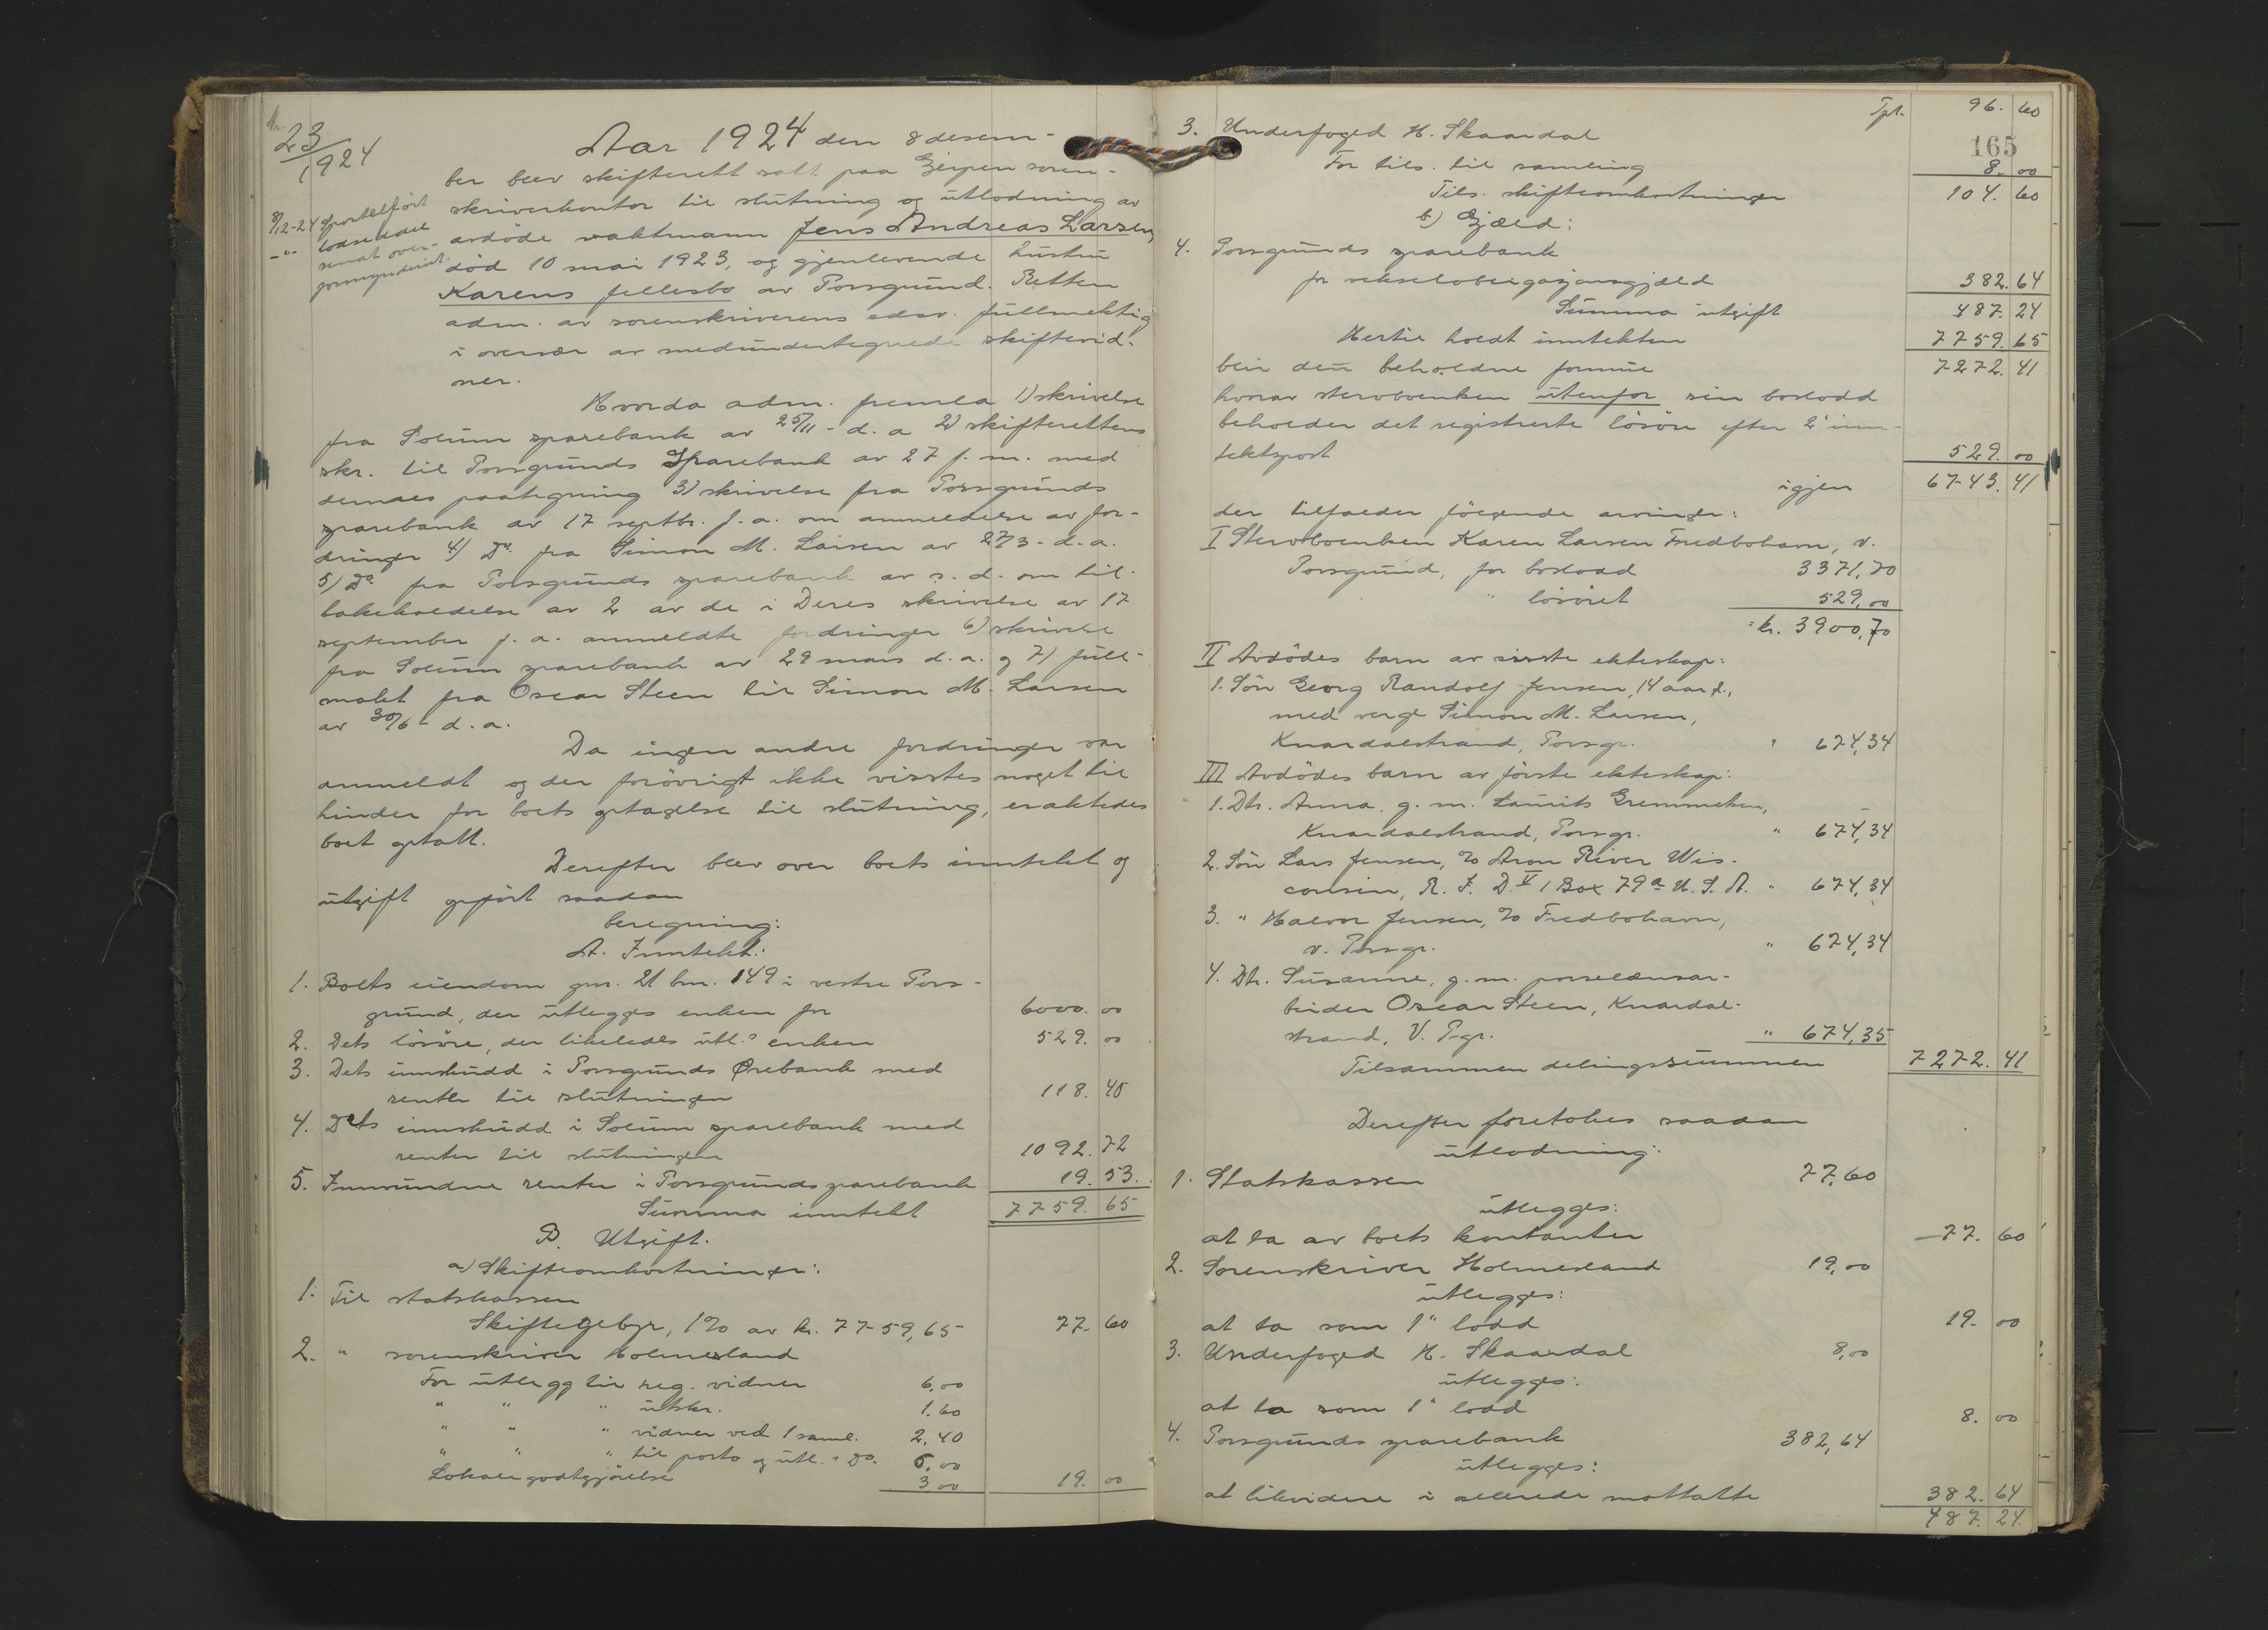 No.
23/1924
8/12-24 Sportelført
-"- lodseddel
sendt over-
formynderiet.
Aar 1924 den 8 desem-
ber blev skifterett satt paa Gjerpen soren-
skriverkontor til slutning og utlodning av
avdöde vaktmann Jens Andreas Larsen,
död 10 mai 1923, og gjenlevende hustru
Karens fellesbo av Porsgrund. Retten
adm. av sorenskriverens edsv. fullmektig
i overvær av medundertegnede skiftevid-
ner.
Hvorda adm. fremla 1) skrivelse
fra Solum sparebank av 25/11 - d. a 2) skifterettens
skr. til Porsgrunds Sparebank av 27 f. m. med
dennes paategning 3) skrivelse fra Porsgrunds
sparebank av 17 septbr. f. a. om anmeldelse av for-
dringer 4) Do fra Simon M. Larsen av 27/3 - d. a.
5) Do fra Porsgrunds sparebank av s. d. om til-
bakeholdelse av 2 av de i Deres skrivelse av 17
september f. a. anmeldte fordringer 6) skrivelse
fra Solum sparebank av 29 mars d. a. og 7) full-
makt fra Oscar Steen til Simon M. Larsen
av 30/6 - d. a.
Da ingen andre fordringer var
anmeldt og der forövrigt ikke visstes noget til
hinder for boets optagelse til slutning, eraktedes
boet optatt.
Derefter blev over boets inntekt og
utgift opfört saadan
beregning:
A. Inntekt:
1. Boets eiendom gnr. 21 bnr. 149 i vestre Pors-
grund, der utlegges enken for 6000. 00
2. Dets lösöre, der likeledes utl.s enken 529. 00
3. Dets innskudd i Porsgrunds Ørebank med
renter til slutningen 118. 40
4. Dets innskudd i Solum sparebank med
renter til slutningen 1092. 72
5. Innvundne renter i Porsgrunds sparebank 19. 53.
Summa inntekt 7759. 65
B. Utgift.
a) Skifteomkostninger:
1. Til statskassen
Skiftegebyr, 1% av kr. 7759,65 77. 60
2. " sorenskriver Holmesland
For utlegg til reg. vidner 6,00
" " " utskr. 1.60
" " " vidner ved 1 saml. 2,40
" " " til porto og utl. s Do. 6,00
Lokalegodtgjörelse 3,00 19. 00
Tpt. 96. 60
165
3. Underfoged H. Skaardal
For tils. til samling 8. 00
Tils. skifteomkostninger 104. 60
b) Gjæld:
4. Porsgrunds sparebank
for vekselobligasjonsgjæld 382. 64
Summa utgift 487. 24
Hertil holdt inntekten 7759. 65
blir den beholdne formue 7272. 41
hvorav stervboenken utenfor sin boslodd
beholder det registrerte lösöre efter 2' inn-
tektspost 529. 00
igjen 6743. 41
der tilfalder följende arvinger:
I Stervboenken Karen Larsen Fredbohavn, v.
Porsgrund, for boslodd 3371,70
" lösöret 529,00
= kr. 3900,70
II Avdödes barn av siste ekteskap:
1. Sön Georg Randolf Jensen, 14 aar g.,
med verge Simon M. Larsen,
Knardalstrand, Porsgr. " 674,34
III Avdödes barn av förste ekteskap:
1. Dtr. Anna, g. m. Laurits Gremmeken,
Knardalstrand, Porsgr. " 674,34
2. Sön Lars Jensen, % Aron River Wis-
consin, R. F. D. V 1 Box 79a U. S. A. " 674,34
3. " Halvor Jensen, % Fredbohavn,
v. Porsgr. " 674,34
4. Dtr. Susanne, g. m. porselensar-
beider Oscar Steen, Knardal-
strand, V. P.gr. " 674,35
Tilsammen delingssummen 7272. 41
Derefter foretokes saadan
utlodning:
1. Statskassen 77,60
utlegges:
at ta av boets kontanter 77. 60
2. Sorenskriver Holmesland 19,00
utlegges:
at ta som 1" lodd 19. 00
3. Underfoged H. Skaardal 8,00
utlegges:
at ta som 1" lodd 8. 00
4. Porsgrunds sparebank 382,64
utlegges:
at likvidere i allerede mottatte 382. 64
487. 24.